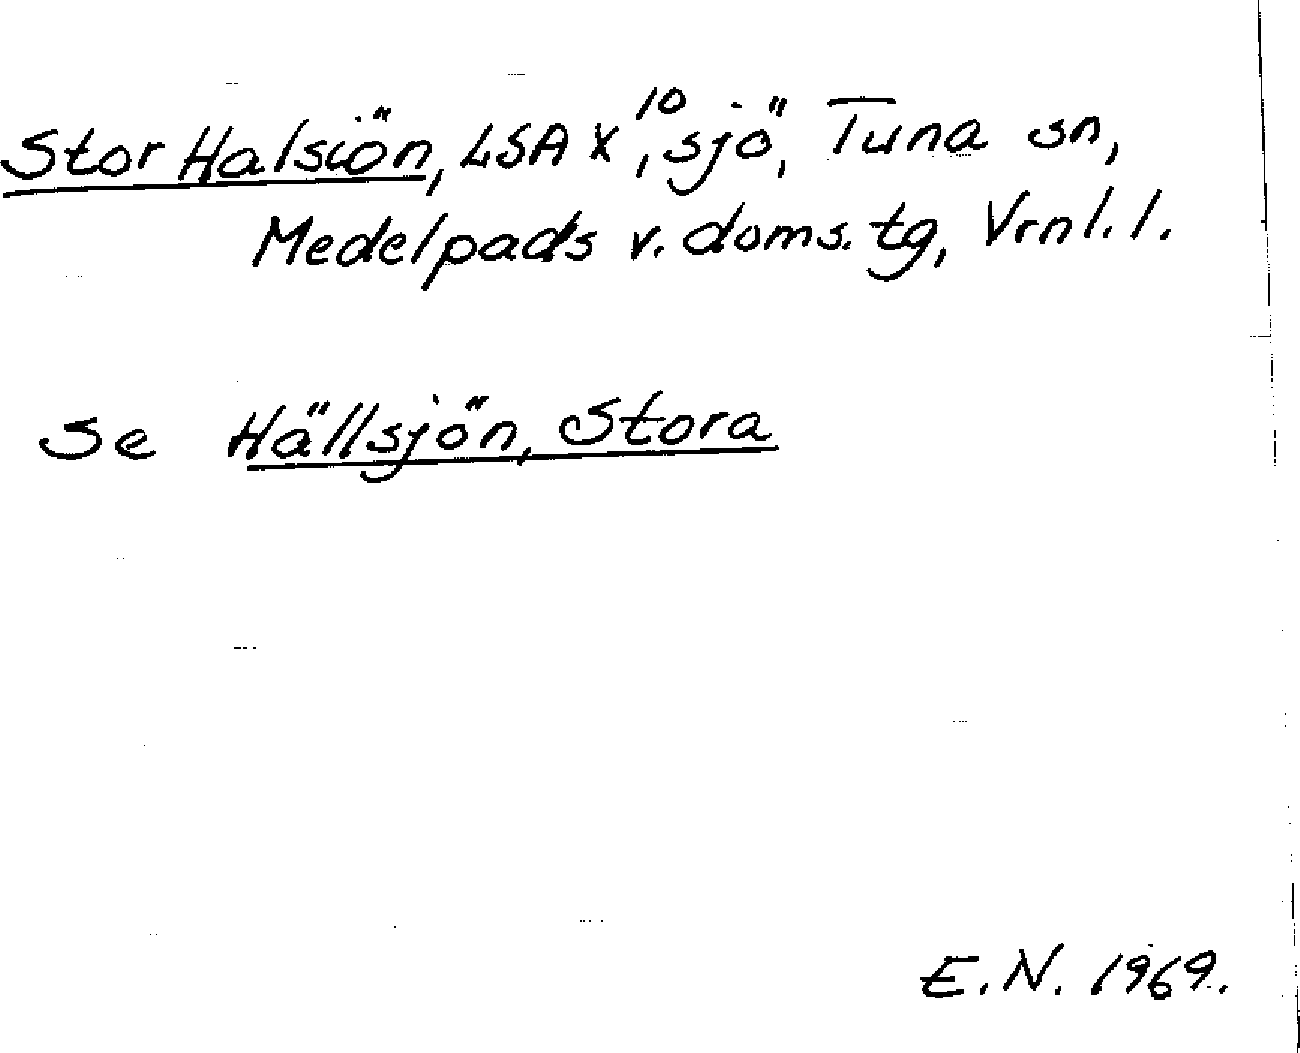 Stor Halsiön, LSA X¹⁰, sjö, Tuna sn,
Medelpads v. doms. tg, Vrnl. l.
Se Hällsjön, Stora
E.N. 1969.